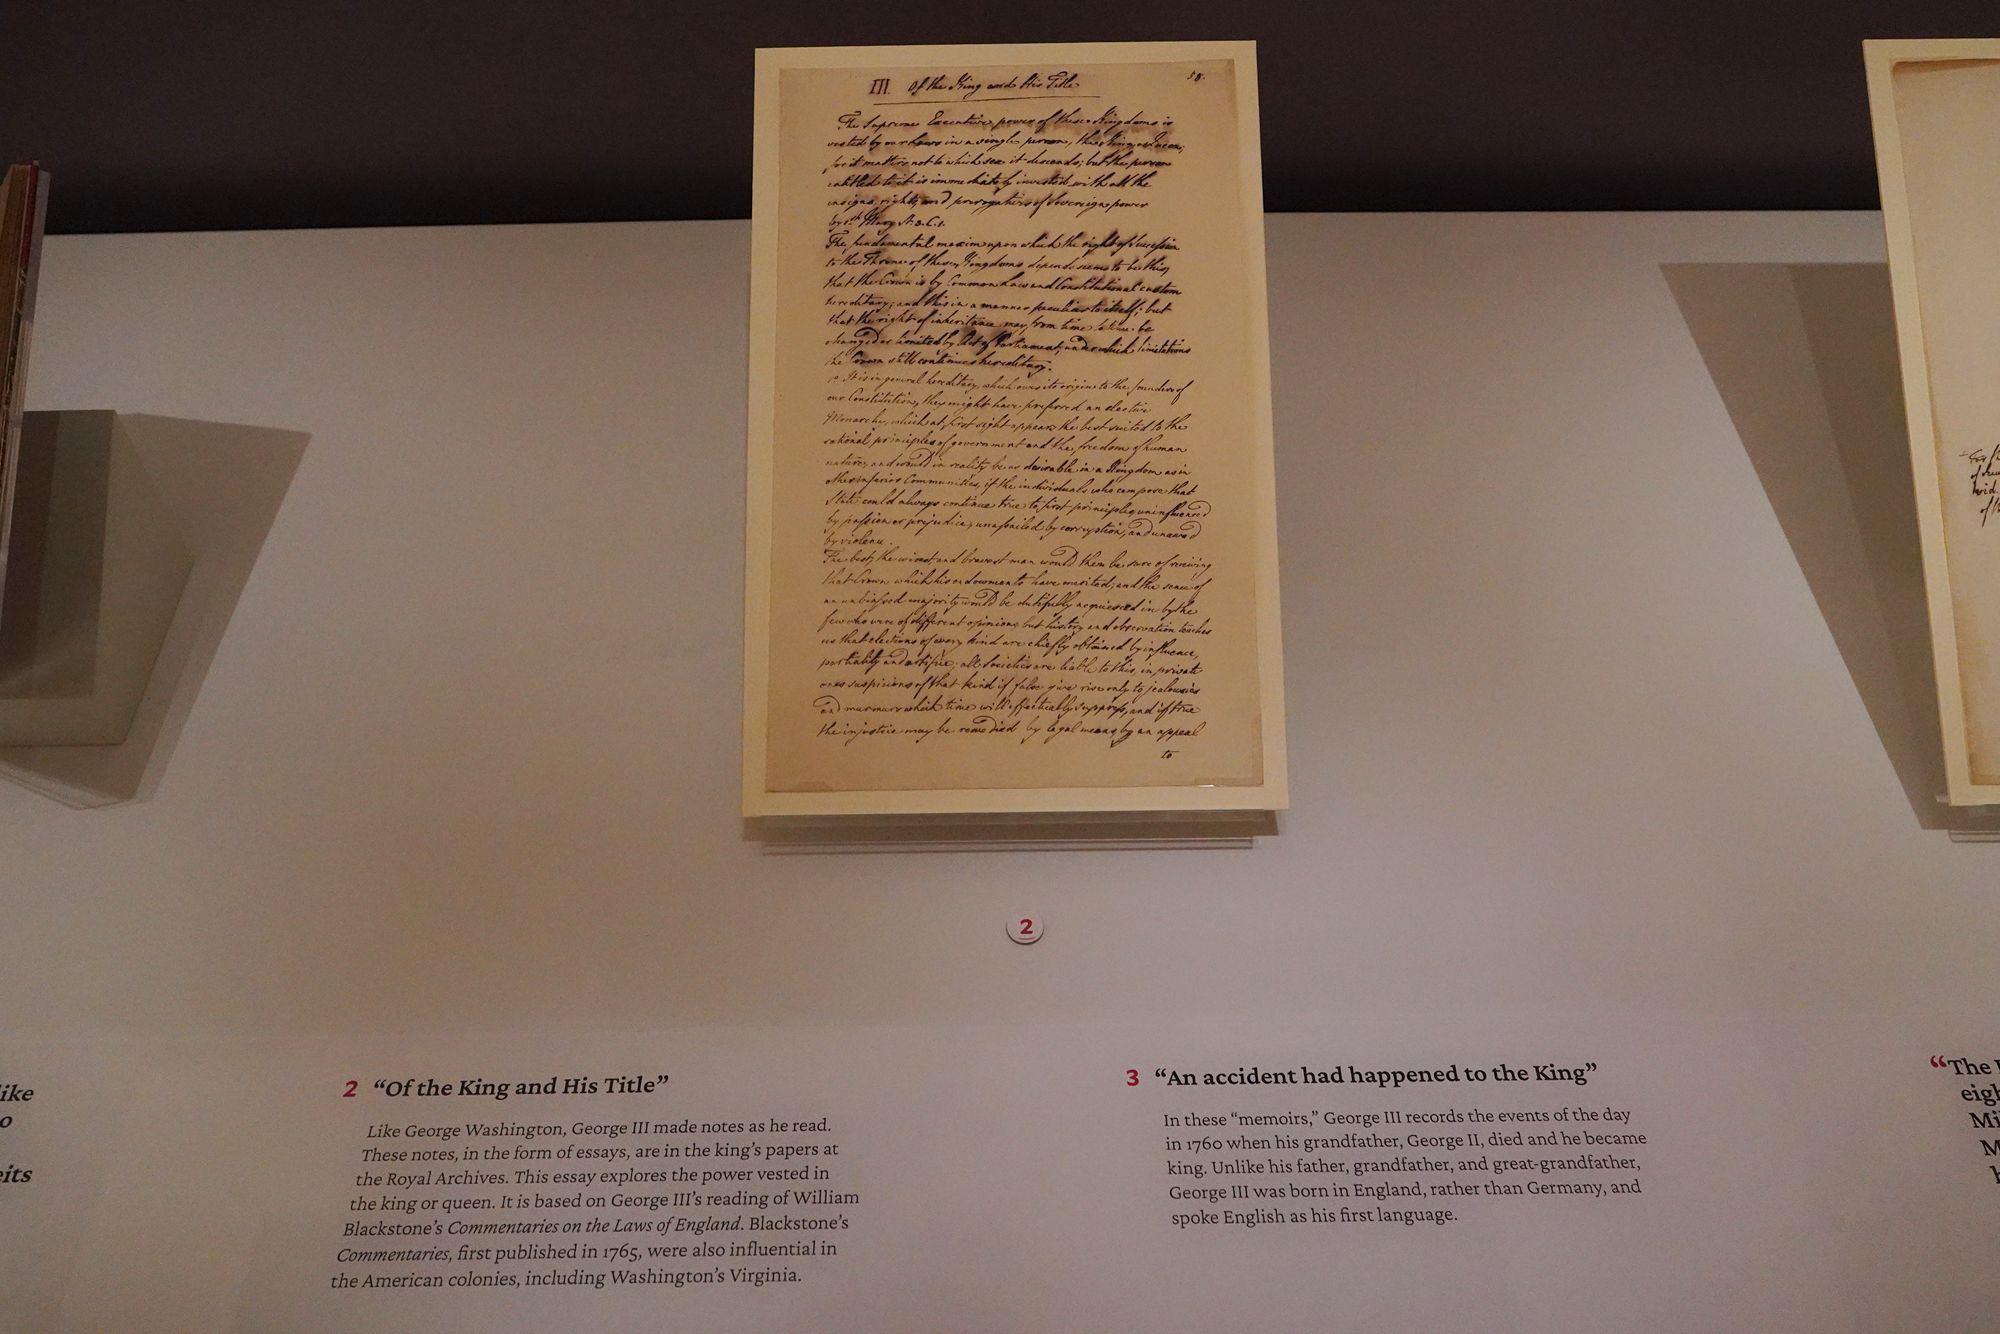 III. Of the King and His Title
58.
The Supreme Executive power of these Kingdoms is
vested by our Laws in a single person, the King or Queen;
for it matters not to which sex it descends; but the person
entitled to it is immediately invested with all the
insigns, rights, and prerogatives of Sovereign power
by 1st Mary St. 2. C. 1.
The fundamental maxim upon which the right of Succession
to the Throne of these Kingdoms depends seems to be this,
that the Crown is by Common Law and Constitutional custom
hereditary; and this in a manner peculiar to itself; but
that the right of inheritance may from time to time be
changed or limited by Act of Parliament; under which limitations
the Crown still continues hereditary.
1o. It is in general hereditary, which owes its origin to the founders of
our Constitution, they might have preferred an elective
Monarchy, which at first sight appears the best suited to the
rational principles of government and the freedom of human
nature; and would in reality be as desirable in a Kingdom as in
other inferior Communities, if the individuals who compose that
State could always continue true to first principles, uninfluenced
by passion or prejudice, unassailed by corruption, and unawed
by violence.
The best, the wisest and bravest man would then be sure of receiving
that Crown which his endowments have merited; and the sense of
an unbiassed majority would be dutifully acquiesced in by the
few who were of different opinions but history and observation teaches
us that elections of every kind are chiefly obtained by influence,
partiality and artifice; all Societies are liable to this, in private
ones suspicions of that kind if false give rise only to jealousies
and murmurs which time will effectually suppress, and if true
the injustice may be remedied by legal means, by an appeal
to
2
ike
o
eits
2 “Of the King and His Title”
Like George Washington, George III made notes as he read.
These notes, in the form of essays, are in the king’s papers at
the Royal Archives. This essay explores the power vested in
the king or queen. It is based on George III’s reading of William
Blackstone’s Commentaries on the Laws of England. Blackstone’s
Commentaries, first published in 1765, were also influential in
the American colonies, including Washington’s Virginia.
3 “An accident had happened to the King”
In these “memoirs,” George III records the events of the day
in 1760 when his grandfather, George II, died and he became
king. Unlike his father, grandfather, and great-grandfather,
George III was born in England, rather than Germany, and
spoke English as his first language.
“The
eigh
Mi
M
h